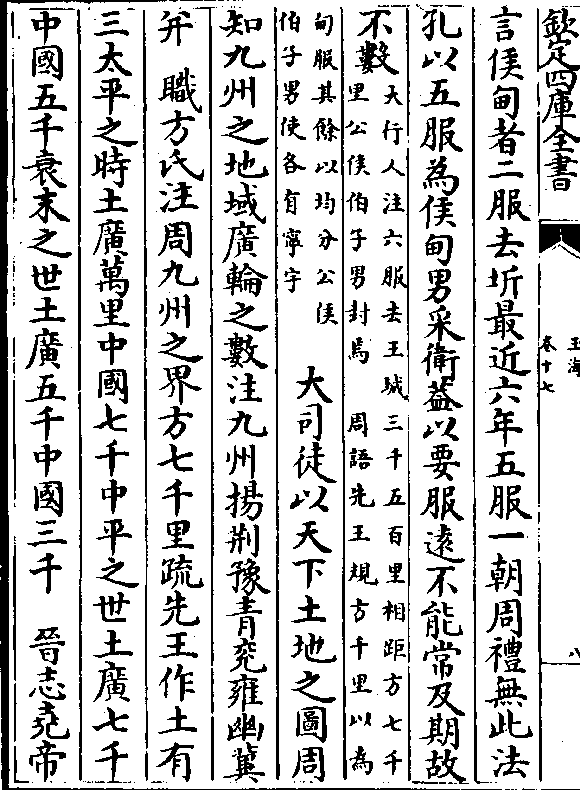 欽定四庫全書
玉海
卷十七
八
言侯甸者二服去圻最近六年五服一朝周禮無此法
孔以五服為侯甸男采衛葢以要服逺不能常及期故
不數
大行人注六服去王城三千五百里相距方七千
里公侯伯子男封焉 周語先王規方千里以為
甸服其餘以均分公侯
伯子男使各有寧宇
大司徒以天下土地之圖周
知九州之地域廣輪之數注九州揚荆豫青兖雍幽冀
并 職方氏注周九州之界方七千里疏先王作土有
三太平之時土廣萬里中國七千中平之世土廣七千
中國五千衰末之世土廣五千中國三千 晉志堯帝